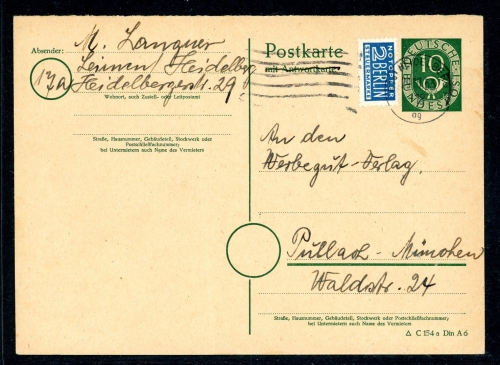 Absender:
M. Langner
Leimen / Heidelberg
17a) Heidelbergerstr. 29
Wohnort, auch Zustell- oder Leitpostamt
Straße, Hausnummer, Gebäudeteil, Stockwerk oder
Postschließfachnummer;
bei Untermietern auch Name des Vermieters
Postkarte
mit Antwortkarte
NOTOPFER
2 BERLIN
STEUERMARKE
DEUTSCHE
10
BUNDESPOST
An den
Werbegut-Verlag.
Pullach - München
Waldstr. 24
Straße, Hausnummer, Gebäudeteil, Stockwerk oder Postschließfachnummer;
bei Untermietern auch Name des Vermieters
△ C 154 a Din A 6